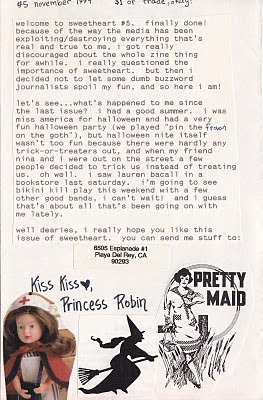 #5 november 1994 $1 or trade, okay!
welcome to sweetheart #5. finally done!
because of the way the media has been
exploiting/destroying everything that's
real and true to me, i got really
discouraged about the whole zine thing
for awhile. i really questioned the
importance of sweetheart. but then i
decided not to let some dumb buzzword
journalists spoil my fun, and so here i am!
let's see...what's happened to me since
the last issue? i had a good summer. i was
miss america for halloween and had a very
fun halloween party (we played "pin the frown
on the goth"), but halloween nite itself
wasn't too fun because there were hardly any
trick-or-treaters out, and when my friend
nina and i were out on the street a few
people decided to trick us instead of treating
us. oh well. i saw lauren bacall in a
bookstore last saturday. i'm going to see
bikini kill play this weekend with a few
other good bands, i can't wait! and i guess
that's about all that's been going on with
me lately.
well dearies, i really hope you like this
issue of sweetheart. you can send me stuff to:
6505 Esplanade #1
Playa Del Rey, CA
90293
Kiss Kiss ♥,
Princess Robin
PRETTY
MAID